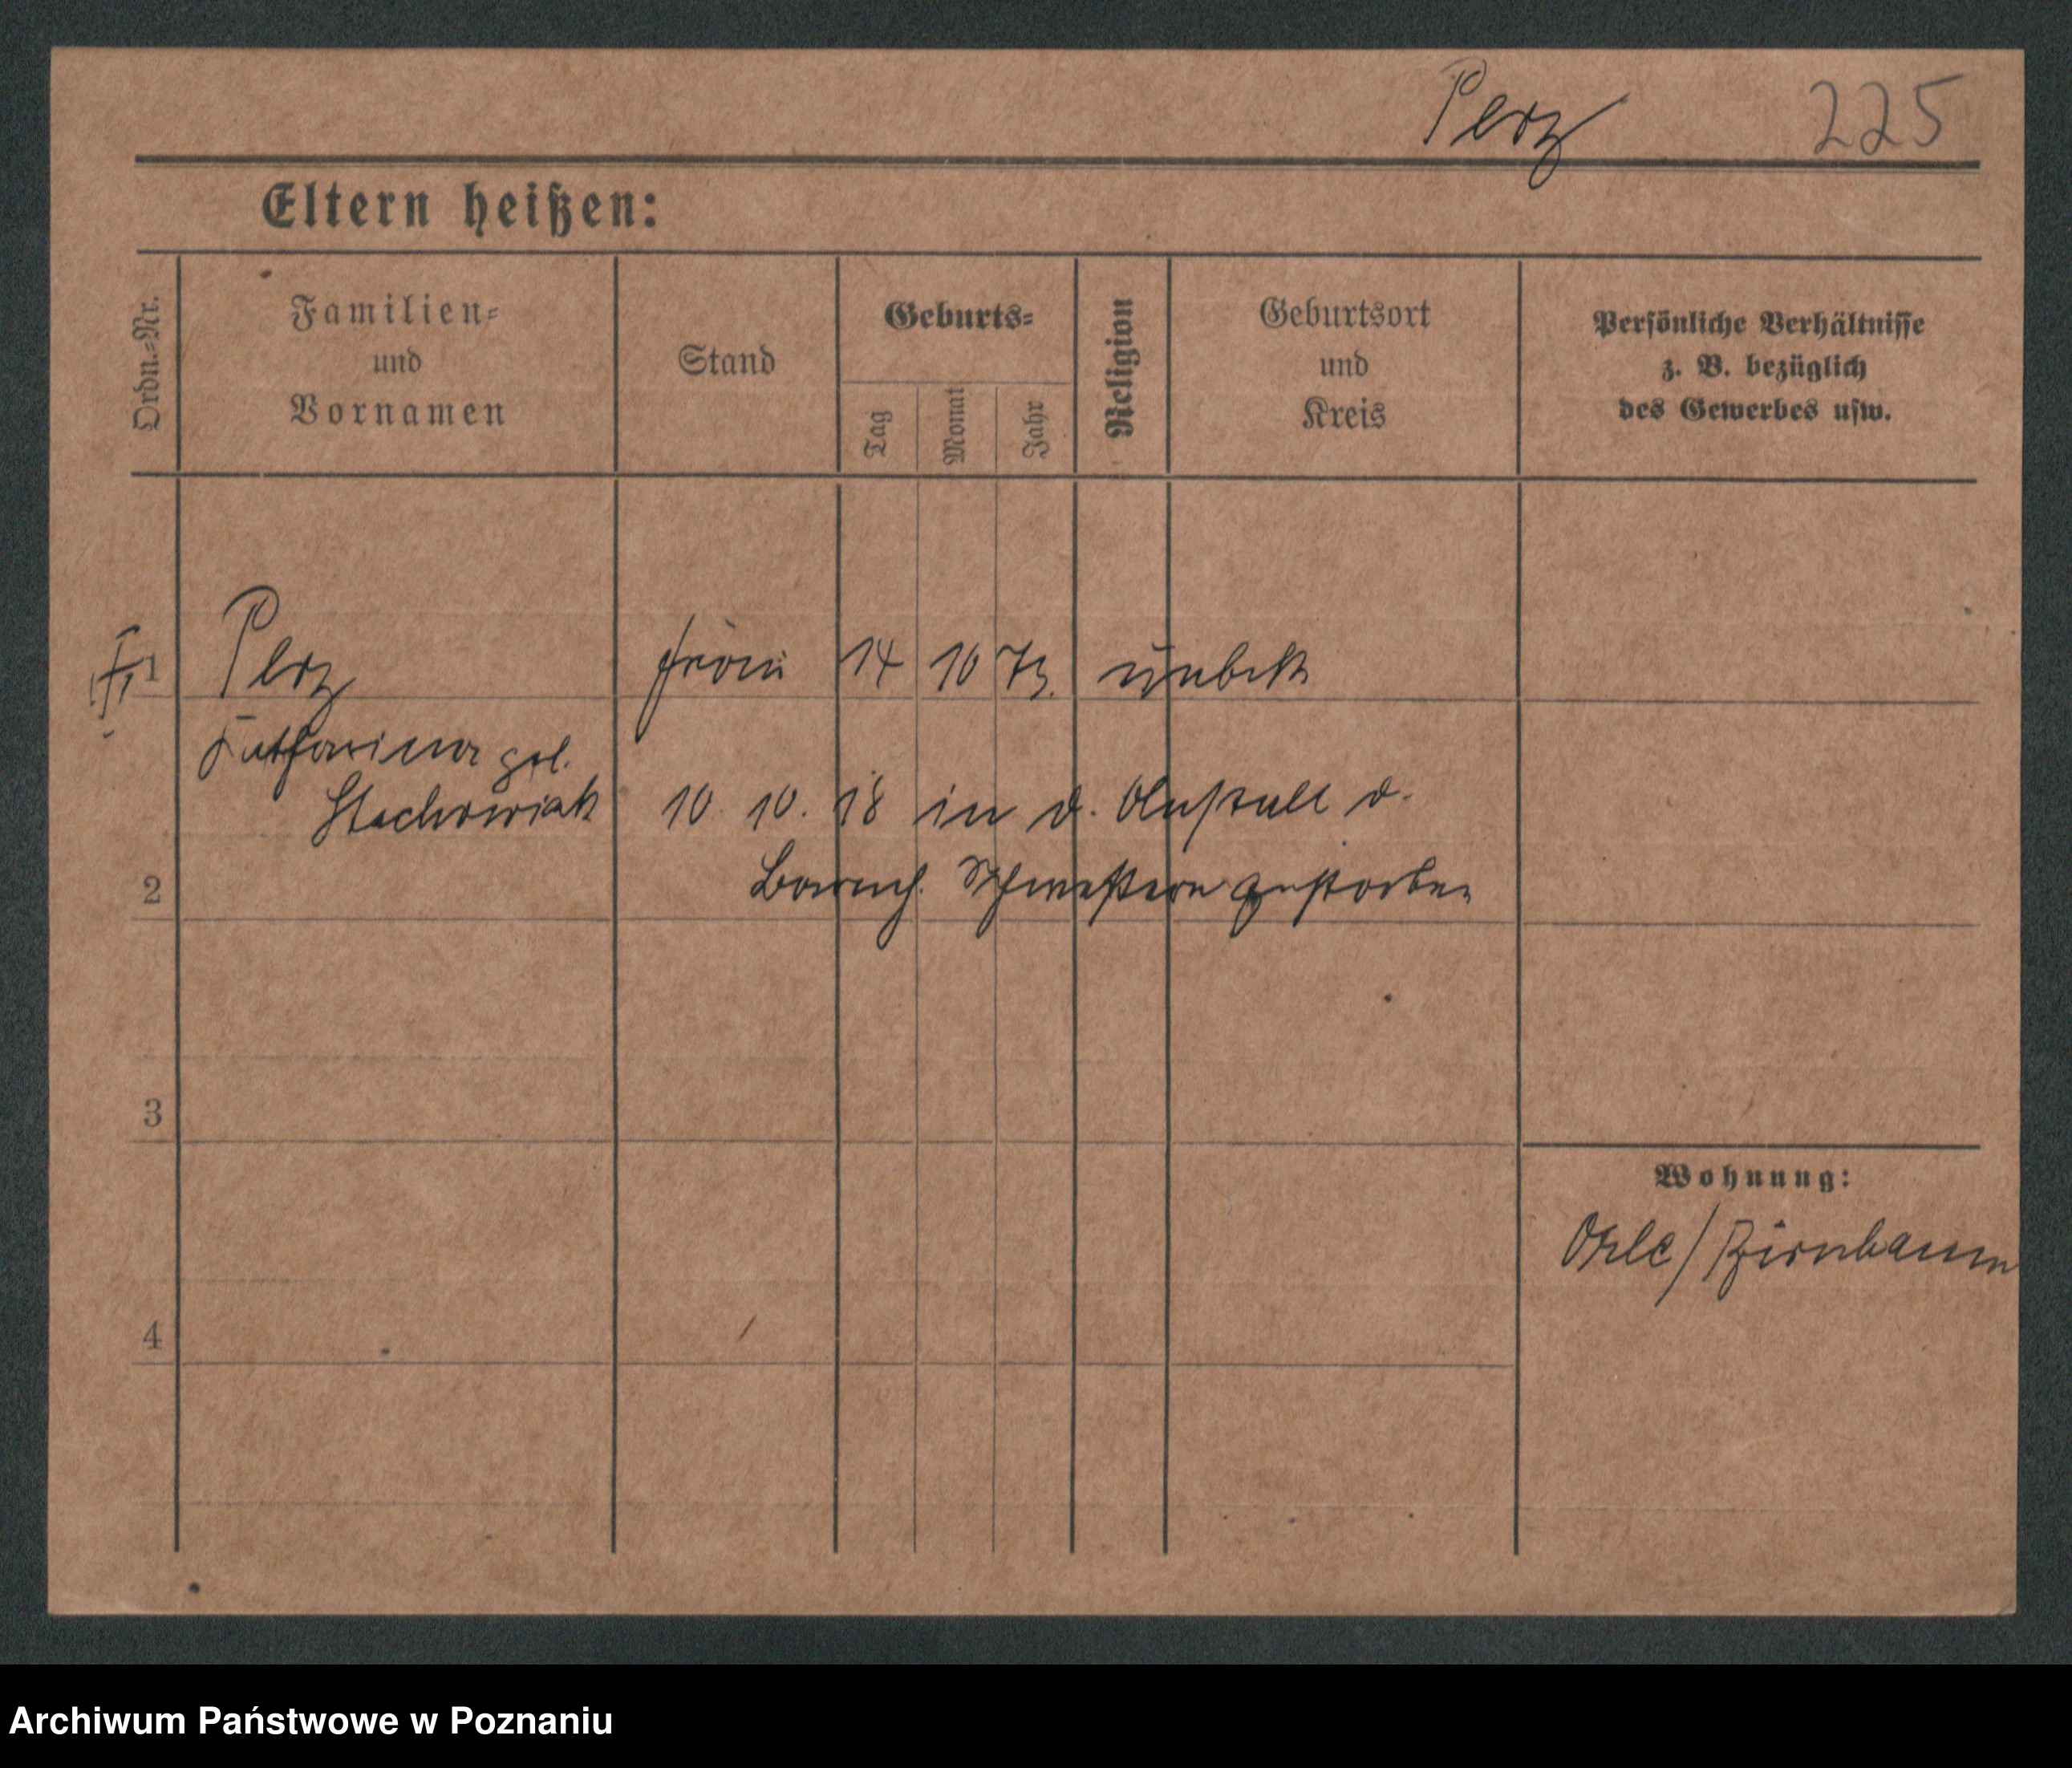 Perz 225
Eltern heißen:
Ordn.-Nr.
Familien-
und
Vornamen
Stand
Geburts-
Tag
Monat
Jahr
Religion
Geburtsort
und
Kreis
Persönliche Verhältnisse
z. B. bezüglich
des Gewerbes usw.
1 Perz Frau 14 10 73. unbek
Katharina geb.
Stachowiak 10. 10. 18 in d. Anstalt d.
Barmh. Schwestern gestorben
2
3
Wohnung:
Orle/Birnbaum
4
Archiwum Państwowe w Poznaniu